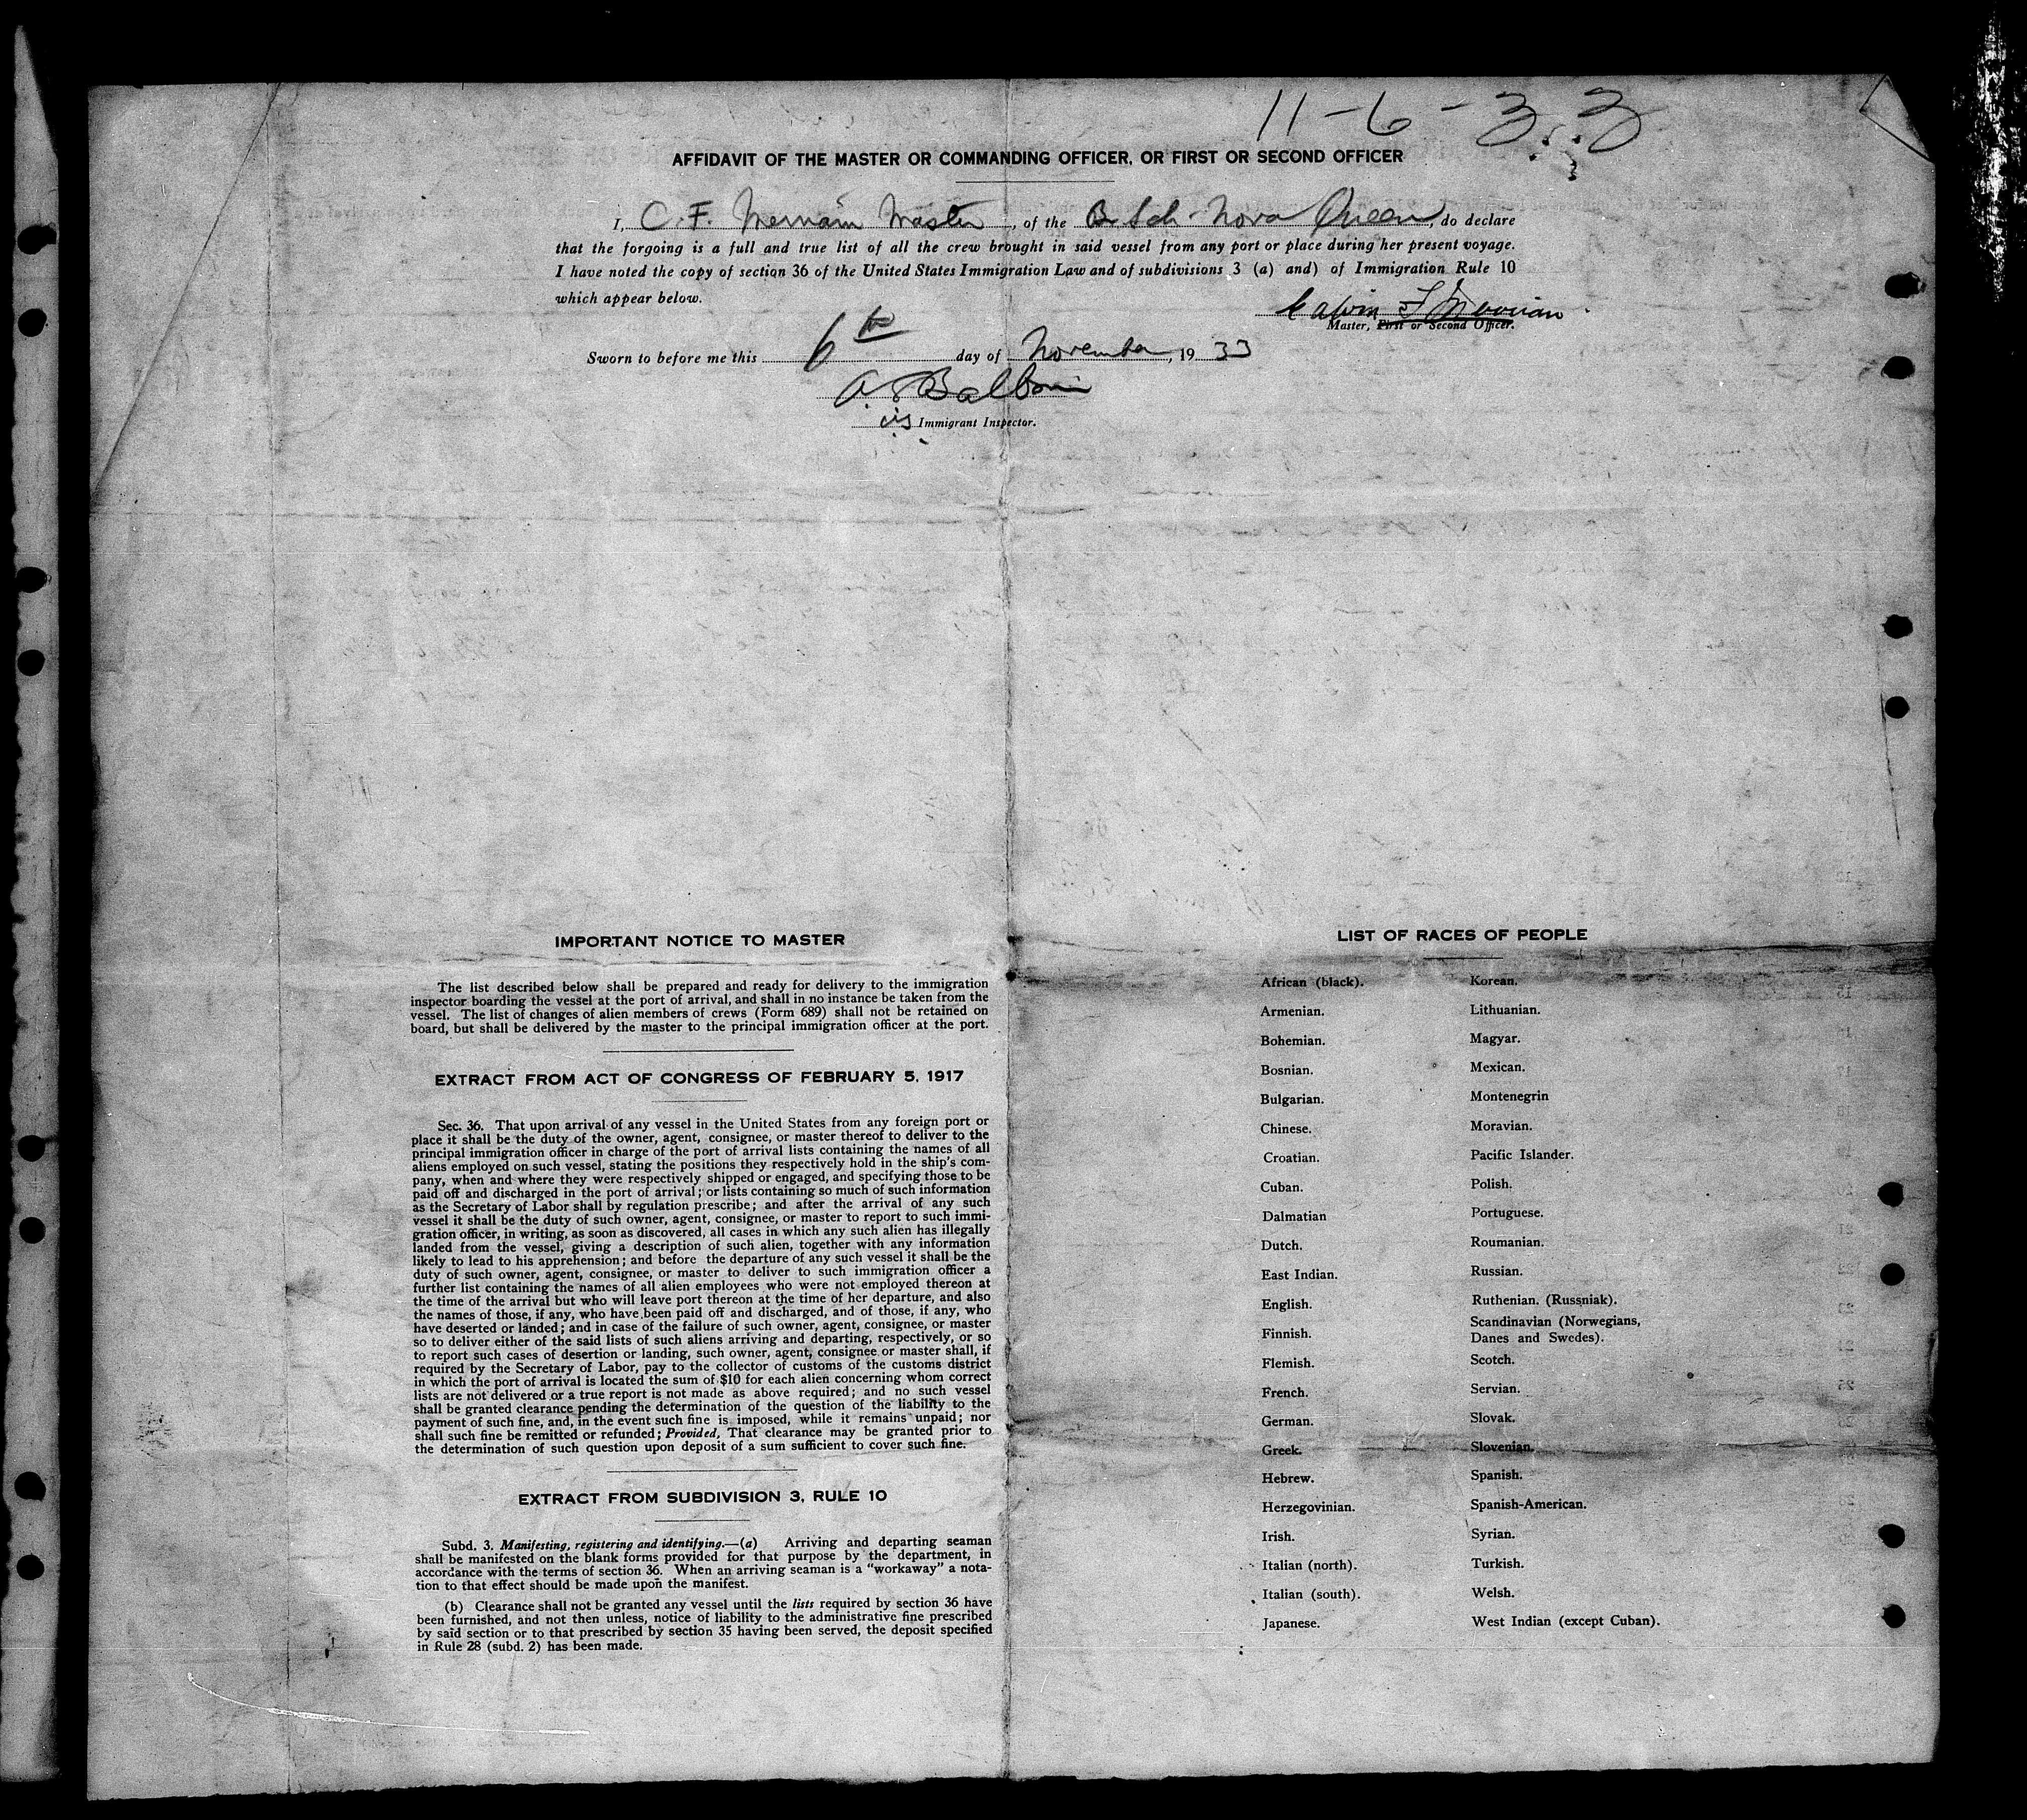 11-6-33
AFFIDAVIT OF THE MASTER OR COMMANDING OFFICER, OR FIRST OR SECOND OFFICER
I, C. F. Merriam Master, of the Br Sch Nova Queen, do declare
that the forgoing is a full and true list of all the crew brought in said vessel from any port or place during her present voyage.
I have noted the copy of section 36 of the United States Immigration Law and of subdivisions 3 (a) and) of Immigration Rule 10
which appear below.
Calvin F
Master, First or Second Officer.
Sworn to before me this 6th day of November, 1933
A. Balboni
Immigrant Inspector.
IMPORTANT NOTICE TO MASTER
The list described below shall be prepared and ready for delivery to the immigration
inspector boarding the vessel at the port of arrival, and shall in no instance be taken from the
vessel. The list of changes of alien members of crews (Form 689) shall not be retained on
board, but shall be delivered by the master to the principal immigration officer at the port.
EXTRACT FROM ACT OF CONGRESS OF FEBRUARY 5, 1917
Sec. 36. That upon arrival of any vessel in the United States from any foreign port or
place it shall be the duty of the owner, agent, consignee, or master thereof to deliver to the
principal immigration officer in charge of the port of arrival lists containing the names of all
aliens employed on such vessel, stating the positions they respectively hold in the ship's com-
pany, when and where they were respectively shipped or engaged, and specifying those to be
paid off and discharged in the port of arrival; or lists containing so much of such information
as the Secretary of Labor shall by regulation prescribe; and after the arrival of any such
vessel it shall be the duty of such owner, agent, consignee, or master to report to such immi-
gration officer, in writing, as soon as discovered, all cases in which any such alien has illegally
landed from the vessel, giving a description of such alien, together with any information
likely to lead to his apprehension; and before the departure of any such vessel it shall be the
duty of such owner, agent, consignee, or master to deliver to such immigration officer a
further list containing the names of all alien employees who were not employed thereon at
the time of the arrival but who will leave port thereon at the time of her departure, and also
the names of those, if any, who have been paid off and discharged, and of those, if any, who
have deserted or landed; and in case of the failure of such owner, agent, consignee, or master
so to deliver either of the said lists of such aliens arriving and departing, respectively, or so
to report such cases of desertion or landing, such owner, agent, consignee or master shall, if
required by the Secretary of Labor, pay to the collector of customs of the customs district
in which the port of arrival is located the sum of $10 for each alien concerning whom correct
lists are not delivered or a true report is not made as above required; and no such vessel
shall be granted clearance pending the determination of the question of the liability to the
payment of such fine, and, in the event such fine is imposed, while it remains unpaid; nor
shall such fine be remitted or refunded; Provided, That clearance may be granted prior to
the determination of such question upon deposit of a sum sufficient to cover such fine.
EXTRACT FROM SUBDIVISION 3, RULE 10
Subd. 3. Manifesting, registering and identifying.—(a) Arriving and departing seaman
shall be manifested on the blank forms provided for that purpose by the department, in
accordance with the terms of section 36. When an arriving seaman is a "workaway" a nota-
tion to that effect should be made upon the manifest.
(b) Clearance shall not be granted any vessel until the lists required by section 36 have
been furnished, and not then unless, notice of liability to the administrative fine prescribed
by said section or to that prescribed by section 35 having been served, the deposit specified
in Rule 28 (subd. 2) has been made.
LIST OF RACES OF PEOPLE
African (black).
Armenian.
Bohemian.
Bosnian.
Bulgarian.
Chinese.
Croatian.
Cuban.
Dalmatian
Dutch.
East Indian.
English.
Finnish.
Flemish.
French.
German.
Greek.
Hebrew.
Herzegovinian.
Irish.
Italian (north).
Italian (south).
Japanese.
Korean.
Lithuanian.
Magyar.
Mexican.
Montenegrin
Moravian.
Pacific Islander.
Polish.
Portuguese.
Roumanian.
Russian.
Ruthenian. (Russniak).
Scandinavian (Norwegians,
Danes and Swedes).
Scotch.
Servian.
Slovak.
Slovenian.
Spanish.
Spanish-American.
Syrian.
Turkish.
Welsh.
West Indian (except Cuban).